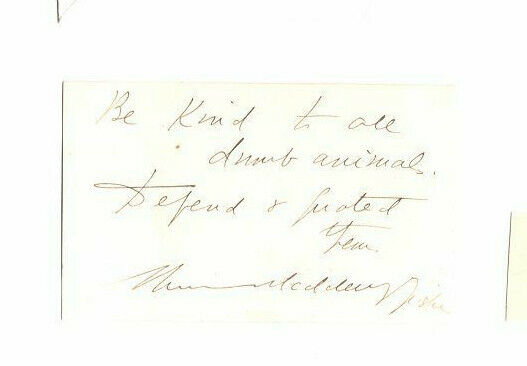 Be Kind to all
dumb animals.
Defend & protect
them.